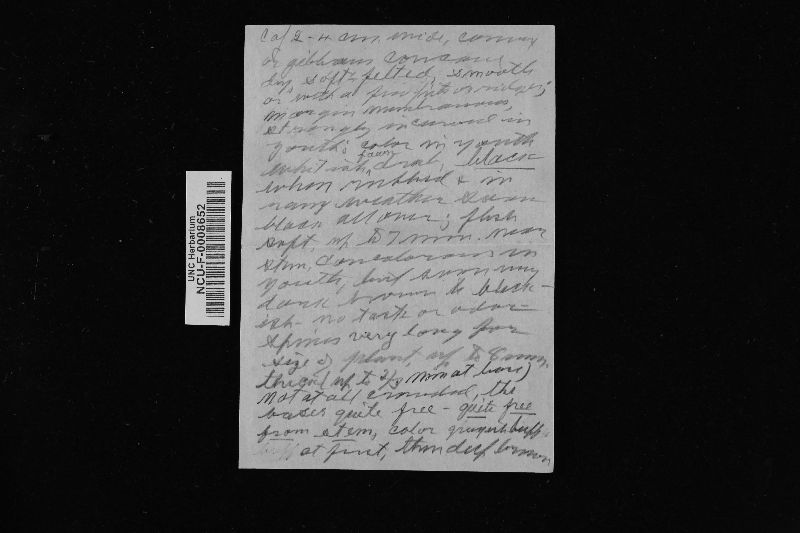 Cap 2-4 cm. wide, convex
or gibbous concave,
dry, soft, felted, smooth
or with a few pits or ridges;
margin membranous,
strongly incurved in
youth; color in youth
whitish, fawn drab, black
when rubbed & in
rainy weather soon
black all over; flesh
soft, up to 7 mm. near
stem, concolorous in
youth, but soon very
dark brown to black-
ish - no taste or odor -
Spines very long for
size of plant up to 8 mm.
thick up to 2/3 mm at base)
not at all crowded, the
bases quite free - quite free
from stem, color grayish buff
at first, then deep brown
UNC Herbarium
NCU-F-0008652